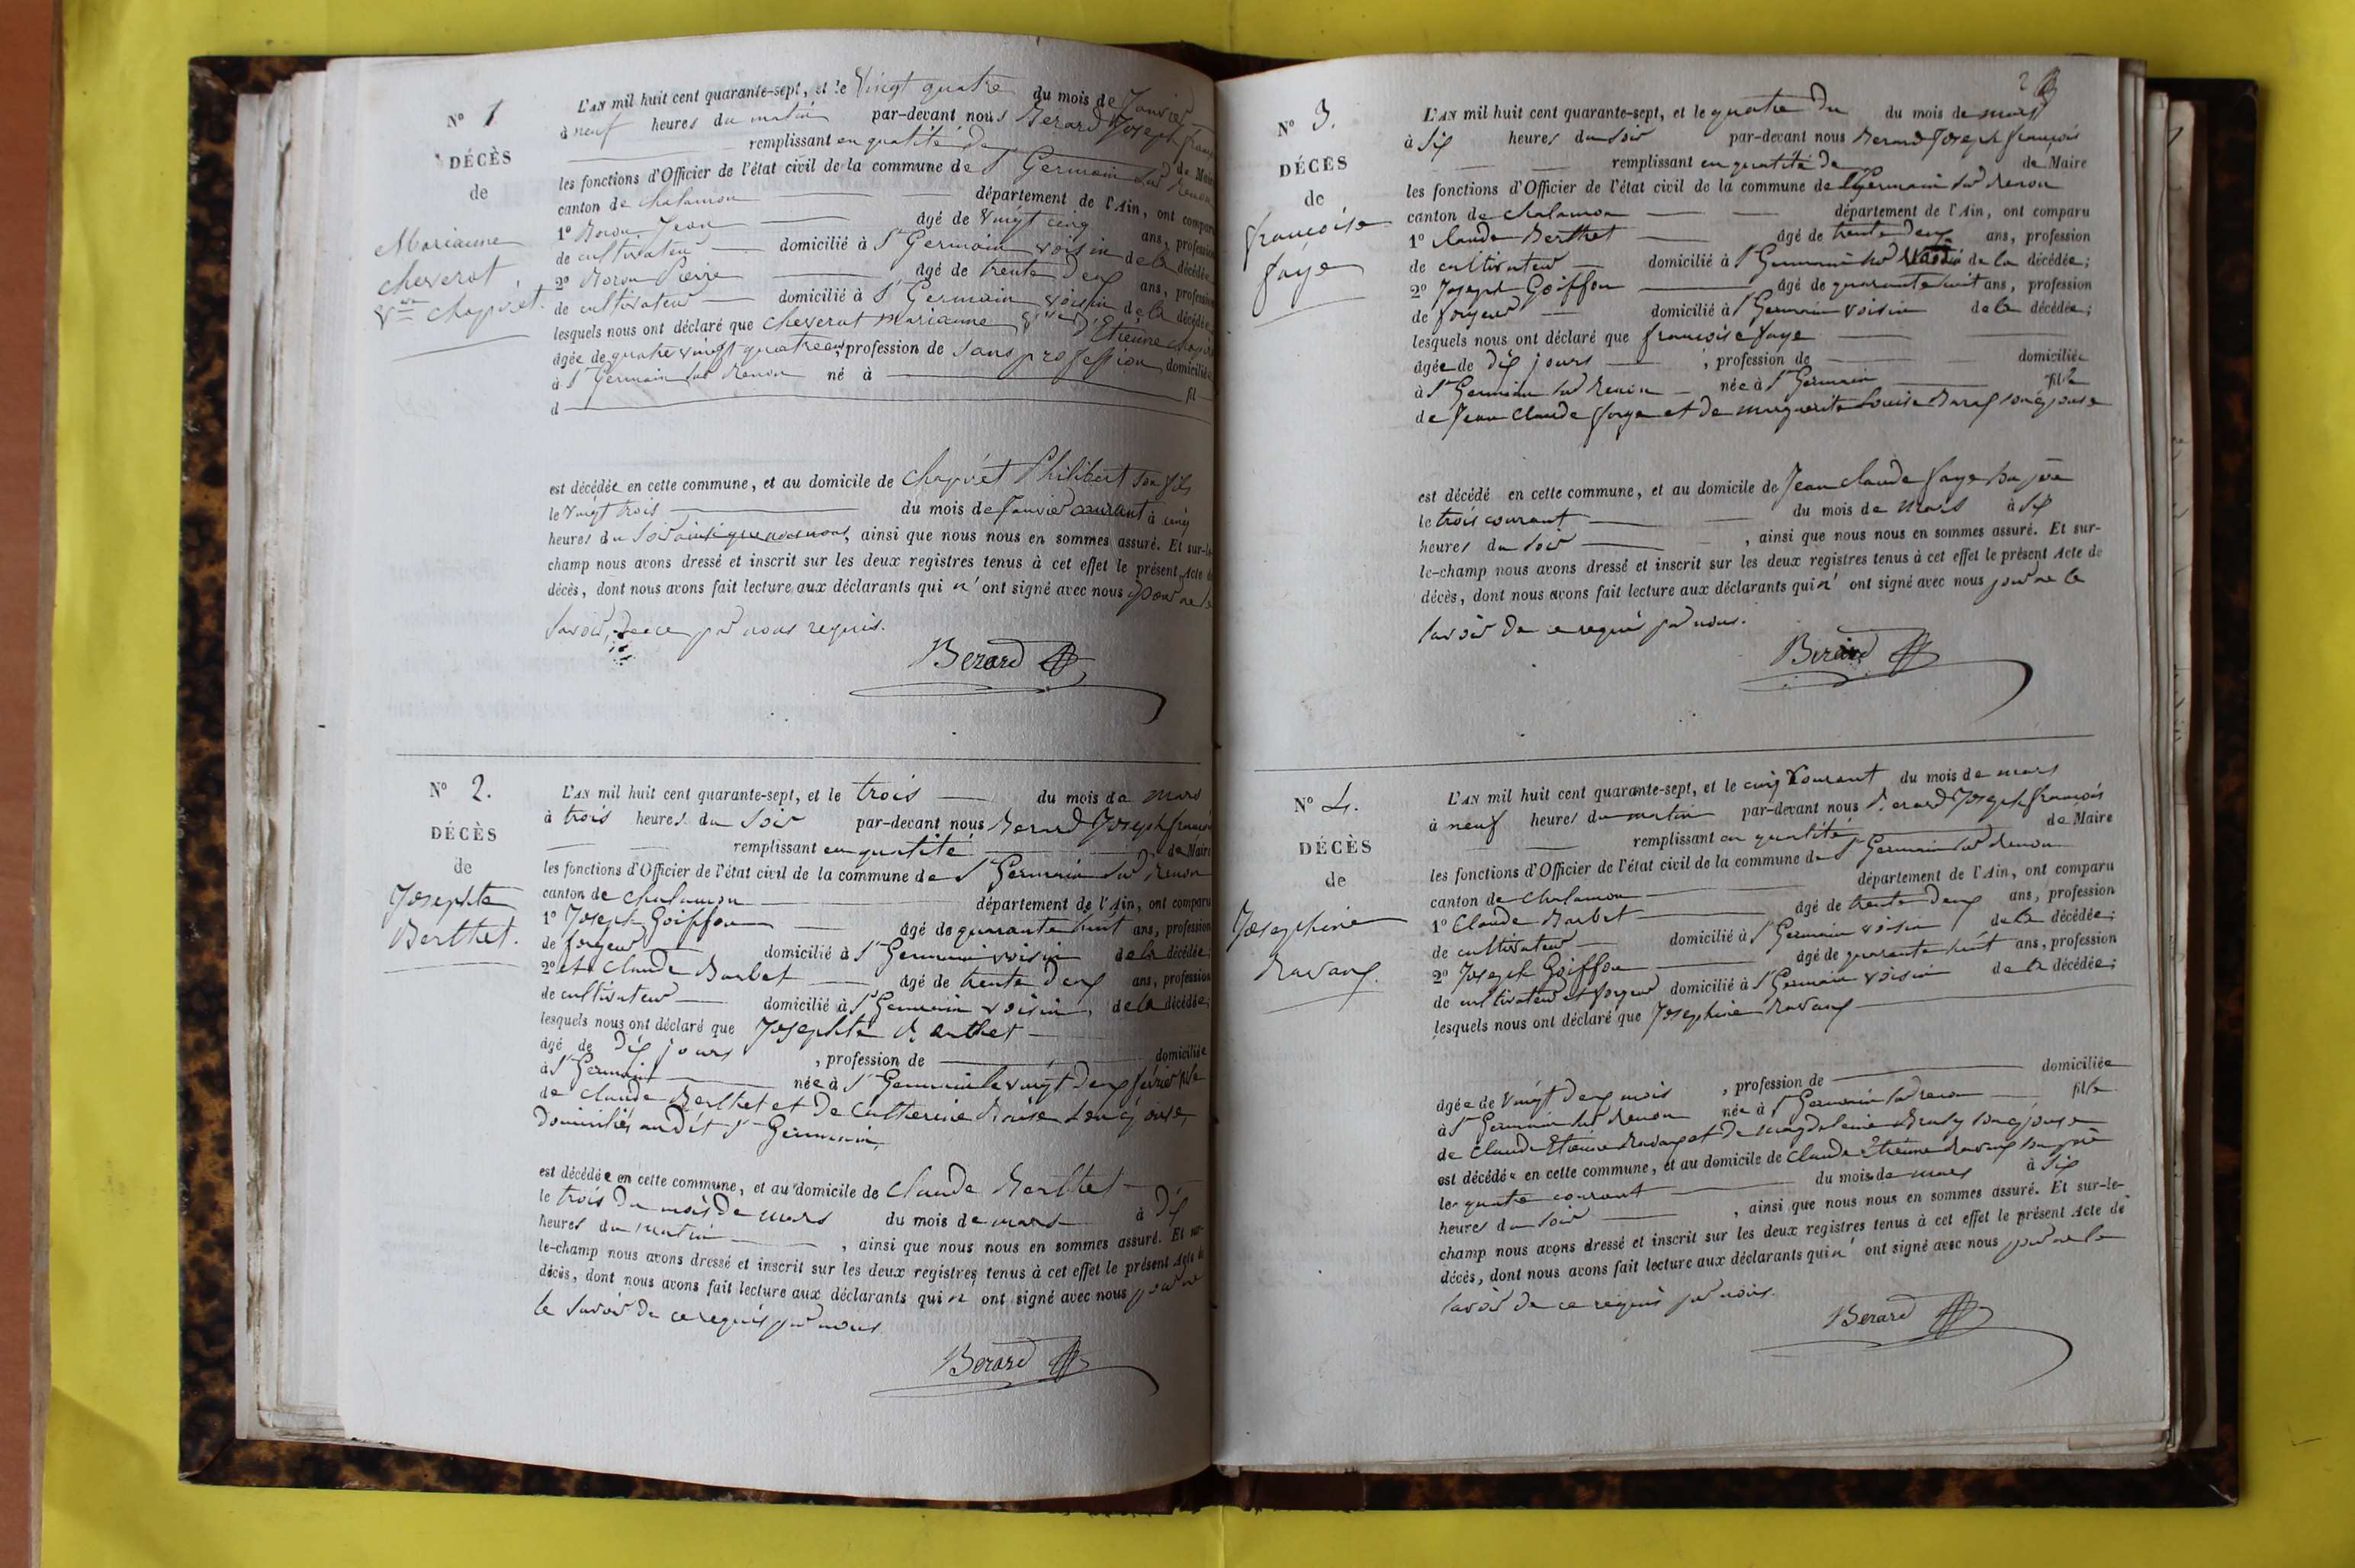 N° 1
DÉCÈS
de
Marianne
cheverot
Vve chapiret.
L'AN mil huit cent quarante-sept, et le vingt quatre du mois de Janvier
à neuf heures du matin par-devant nous Berard Joseph
remplissant en qualité de de Maire
les fonctions d'Officier de l'état civil de la commune de St Germain sur Renon
canton de chalamon département de l'Ain, ont comparu
1° Jean âgé de vingt cinq ans, profession
de cultivateur domicilié à St Germain voisin de la décédée
2° Pierre âgé de trente deux ans, profession
de cultivateur domicilié à St Germain voisin de la décédée
lesquels nous ont déclaré que cheverot marianne d'Etienne
âgée de quatre vingt quatre ans, profession de sans profession domiciliée
à St Germain sur Renon né à fil
d
est décédée en cette commune, et au domicile de Philibert son fils
le vingt trois du mois de Janvier courant à cinq
heures du soir, ainsi que nous nous en sommes assuré. Et sur-le-
champ nous avons dressé et inscrit sur les deux registres tenus à cet effet le présent Acte de
décès, dont nous avons fait lecture aux déclarants qui n' ont signé avec nous pour ne le
savoir, de ce par nous requis.
Berard
N° 2.
DÉCÈS
de
Josephte
Berthet.
L'AN mil huit cent quarante-sept, et le trois du mois de mars
à trois heures du soir par-devant nous Berard Joseph françois
remplissant en qualité de Maire
les fonctions d'Officier de l'état civil de la commune de St Germain sur Renon
canton de chalamon département de l'Ain, ont comparu
1° Joseph Goiffon âgé de quarante huit ans, profession
de forgeur domicilié à St Germain voisin de la décédée;
2° et Claude Barbet âgé de trente deux ans, profession
de cultivateur domicilié à St Germain voisin, de la décédée;
lesquels nous ont déclaré que Josephte Berthet
âgé de dix jours, profession de domiciliée
à St Germain née à St Germain le vingt deux février fille
de Claude Berthet et de Catherine son épouse,
domiciliés audit St Germain
est décédée en cette commune, et au domicile de Claude Berthet
le trois du mois de mars du mois de mars à dix
heures du matin, ainsi que nous nous en sommes assuré. Et sur-
le-champ nous avons dressé et inscrit sur les deux registres tenus à cet effet le présent Acte de
décès, dont nous avons fait lecture aux déclarants qui n' ont signé avec nous pour ne
le savoir de ce requis par nous
Berard
N° 3.
DÉCÈS
de
françoise
faye
L'AN mil huit cent quarante-sept, et le quatre du du mois de mars
à six heures du soir par-devant nous Berard Joseph françois
remplissant en qualité de de Maire
les fonctions d'Officier de l'état civil de la commune de St Germain sur Renon
canton de chalamon département de l'Ain, ont comparu
1° Claude Berthet âgé de trente deux ans, profession
de cultivateur domicilié à St Germain de la décédée;
2° Joseph Goiffon âgé de quarante huit ans, profession
de forgeur domicilié à St Germain voisin de la décédée;
lesquels nous ont déclaré que françoise faye
âgée de dix jours, profession de domiciliée
à St Germain sur Renon née à St Germain fille
de Jean Claude faye et de marguerite Louise son épouse
est décédé en cette commune, et au domicile de Jean Claude faye son père
le trois courant du mois de mars à six
heures du soir, ainsi que nous nous en sommes assuré. Et sur-
le-champ nous avons dressé et inscrit sur les deux registres tenus à cet effet le présent Acte de
décès, dont nous avons fait lecture aux déclarants qui n' ont signé avec nous pour ne le
savoir de ce requis par nous.
Berard
N° 4.
DÉCÈS
de
Josephine
Ravaux.
L'AN mil huit cent quarante-sept, et le cinq courant du mois de mars
à neuf heures du matin par-devant nous Berard Joseph françois
remplissant en qualité de Maire
les fonctions d'Officier de l'état civil de la commune de St Germain sur Renon
canton de chalamon département de l'Ain, ont comparu
1° Claude Barbet âgé de trente deux ans, profession
de cultivateur domicilié à St Germain voisin de la décédée;
2° Joseph Goiffon âgé de quarante huit ans, profession
de cultivateur et forgeur domicilié à St Germain voisin de la décédée;
lesquels nous ont déclaré que Josephine Ravaux
âgée de vingt deux mois, profession de domiciliée
à St Germain sur Renon née à St Germain sur renon fille
de Claude Etienne Ravaux et de magdeleine son épouse
est décédée en cette commune, et au domicile de Claude Etienne Ravaux son père
le quatre courant du mois de mars à six
heures du soir, ainsi que nous nous en sommes assuré. Et sur-le-
champ nous avons dressé et inscrit sur les deux registres tenus à cet effet le présent Acte de
décès, dont nous avons fait lecture aux déclarants qui n' ont signé avec nous pour ne le
savoir de ce requis par nous.
Berard